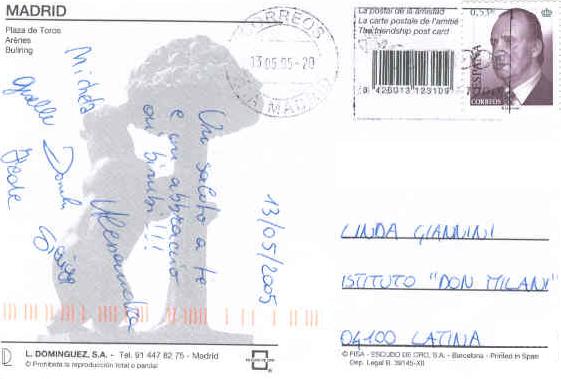 MADRID
Plaza de Toros
Arènes
Bullring
CORREOS
13 05 05 - 20
MADRID
La postal de la amistad
La carte postale de l'amitié
The friendship post card
8 426013 123109
0,53€
ESPAÑA
CORREOS
Un saluto a te
e un abbraccio
ai bimbi!!!
Michela
Giselle
Fede
13/05/2005
LINDA GIANNINI
ISTITUTO "DON MILANI"
04100 LATINA
L. DOMINGUEZ, S.A. - Tel. 91 447 82 75 - Madrid
© Prohibida la reproducción total o parcial
© FISA - ESCUDO DE ORO, S.A. - Barcelona - Printed in Spain
Dep. Legal B. 39145-XII